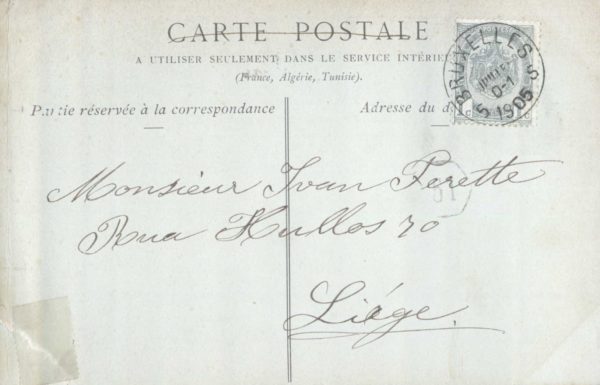 CARTE POSTALE
A UTILISER SEULEMENT DANS LE SERVICE INTÉRIEUR
(France, Algérie, Tunisie).
Partie réservée à la correspondance
Adresse du d
BRUXELLES 5
JUILLET
0-1
1905
5 5
Monsieur Ivan Perette
Rua Hullos 70
Liége.